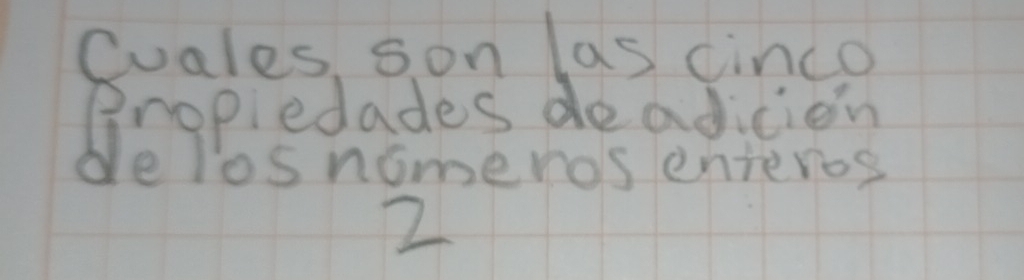 Cuales son las cinco
Propiedades de adición
de los números enteros
2